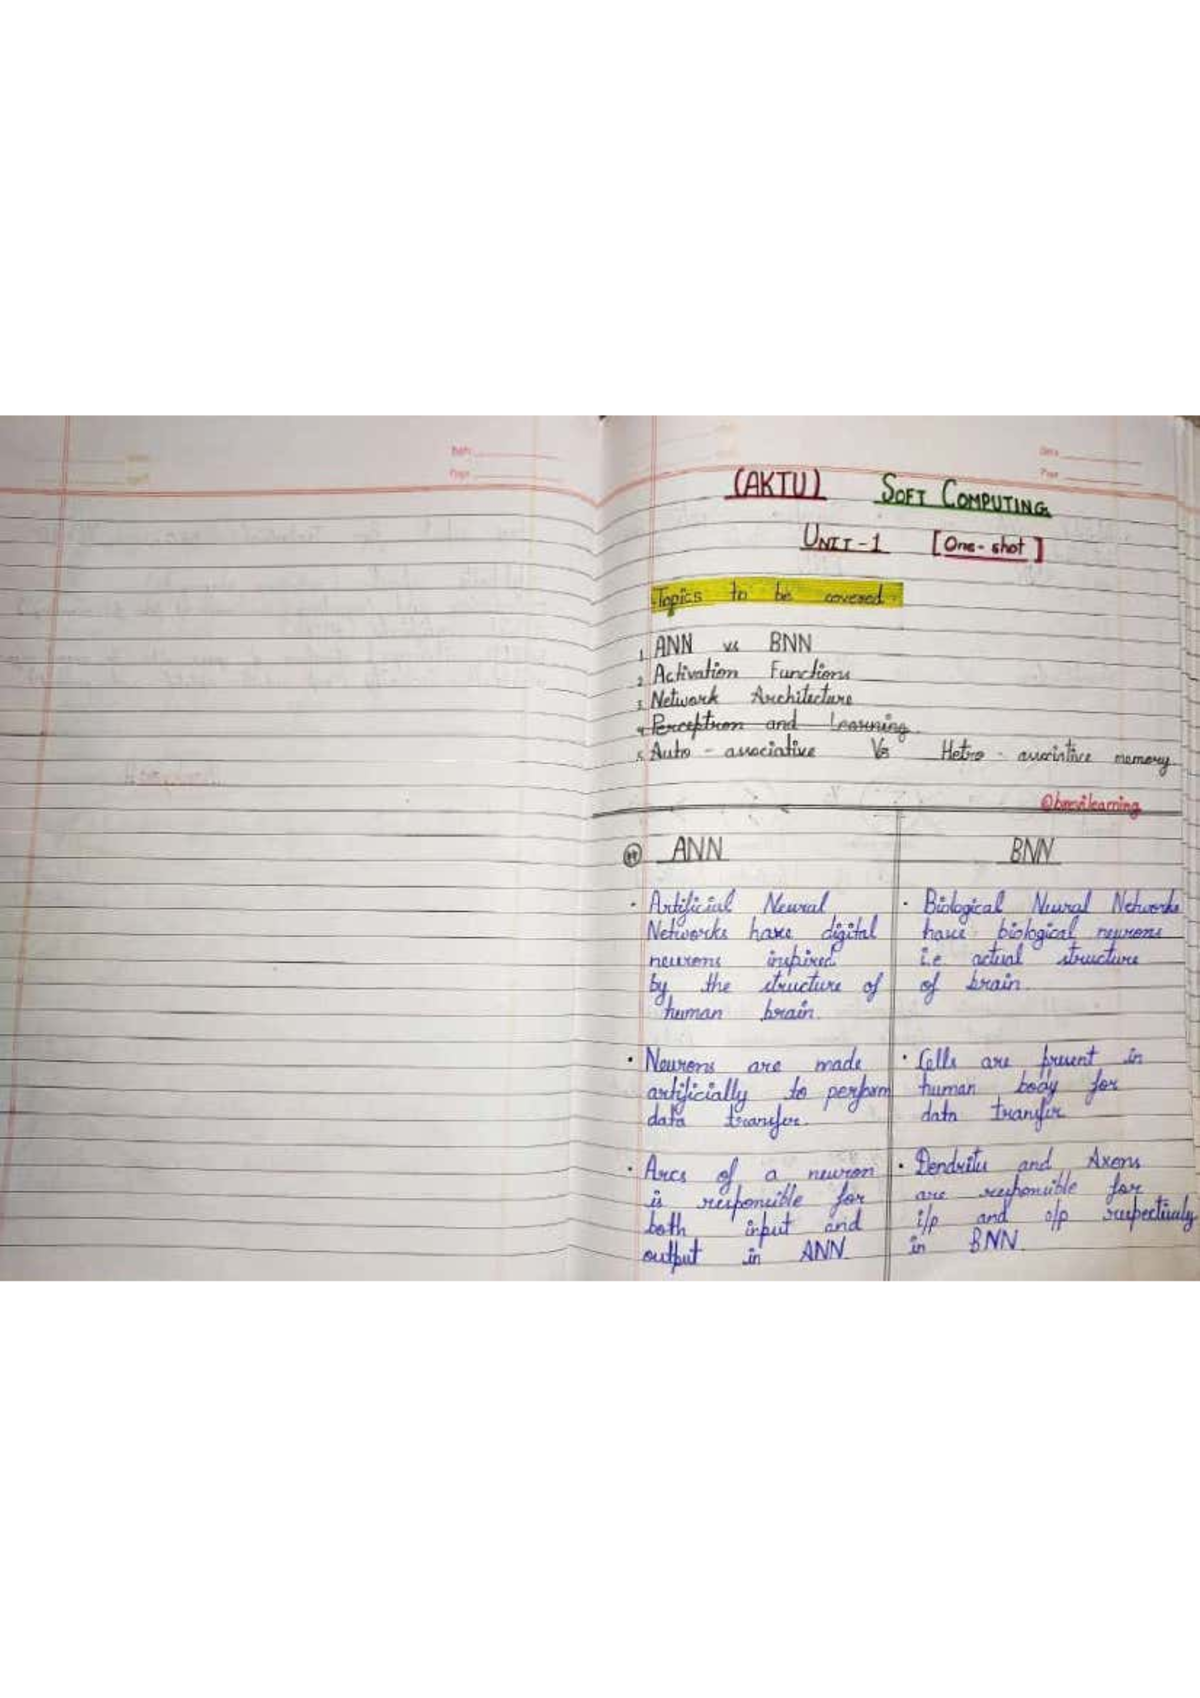 Date
Page
Date
Page
(AKTU) SOFT COMPUTING
UNIT-1 [One-shot]
Topics to be covered
1. ANN vs BNN
2. Activation Functions
3. Network Architecture
4. Perceptron and Learning
5. Auto - associative Vs Hetro - associative memory
@brevilearning
ANN
• Artificial Neural
Networks have digital
neurons inspired
by the structure of
human brain.
• Neurons are made
artificially to perform
data transfer.
• Arcs of a neuron
is responsible for
both input and
output in ANN
BNN
• Biological Neural Networks
have biological neurons
i.e actual structure
of brain.
• Cells are present in
human body for
data transfer
• Dendrites and Axons
are responsible for
i/p and o/p respectively
in BNN.